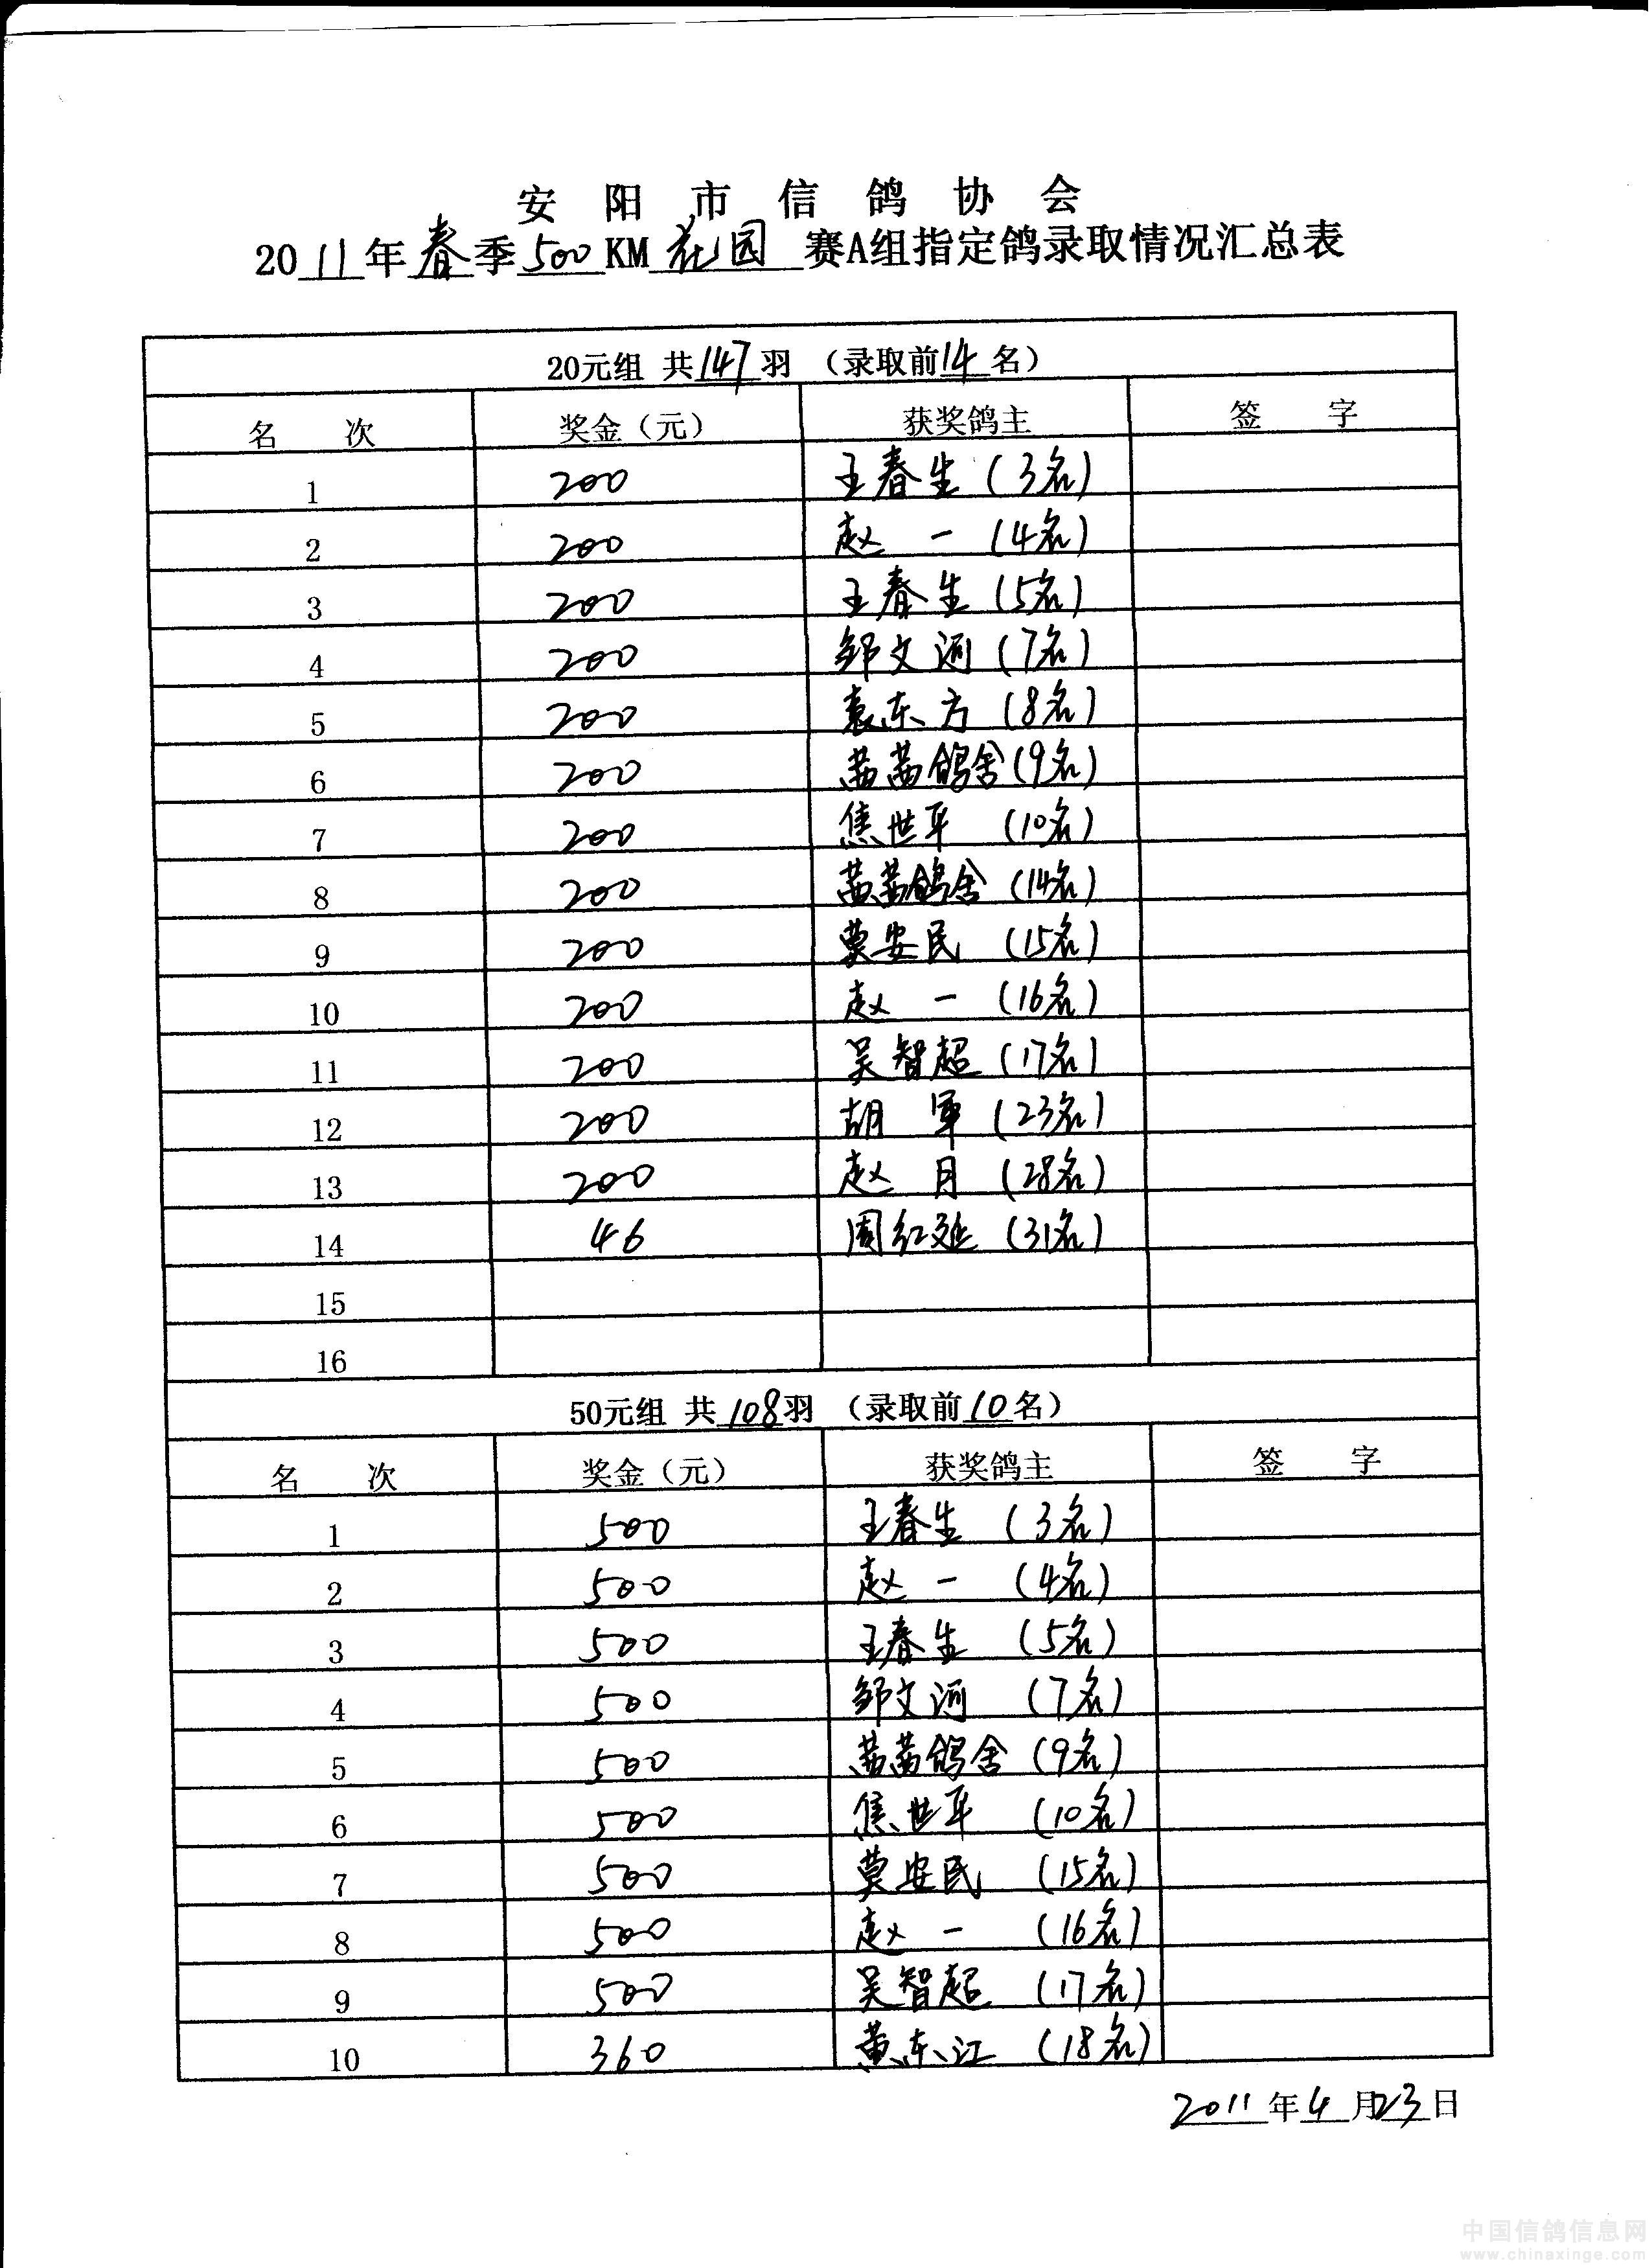 安阳市信鸽协会
2011年春季500KM花园赛A组指定鸽录取情况汇总表
20元组 共147羽 （录取前14名）
名 次 奖金（元） 获奖鸽主 签 字
1 200 王春生（3名）
2 200 赵一（4名）
3 200 王春生（5名）
4 200 邹文河（7名）
5 200 袁东方（8名）
6 200 茜茜鸽舍（9名）
7 200 焦世平（10名）
8 200 茜茜鸽舍（14名）
9 200 莫安民（15名）
10 200 赵一（16名）
11 200 吴智超（17名）
12 200 胡军（23名）
13 200 赵月（28名）
14 46 周红延（31名）
15
16
50元组 共108羽 （录取前10名）
名 次 奖金（元） 获奖鸽主 签 字
1 500 王春生（3名）
2 500 赵一（4名）
3 500 王春生（5名）
4 500 邹文河（7名）
5 500 茜茜鸽舍（9名）
6 500 焦世平（10名）
7 500 莫安民（15名）
8 500 赵一（16名）
9 500 吴智超（17名）
10 360 黄东江（18名）
2011年4月23日
中国信鸽信息网
www.chinaxinge.com